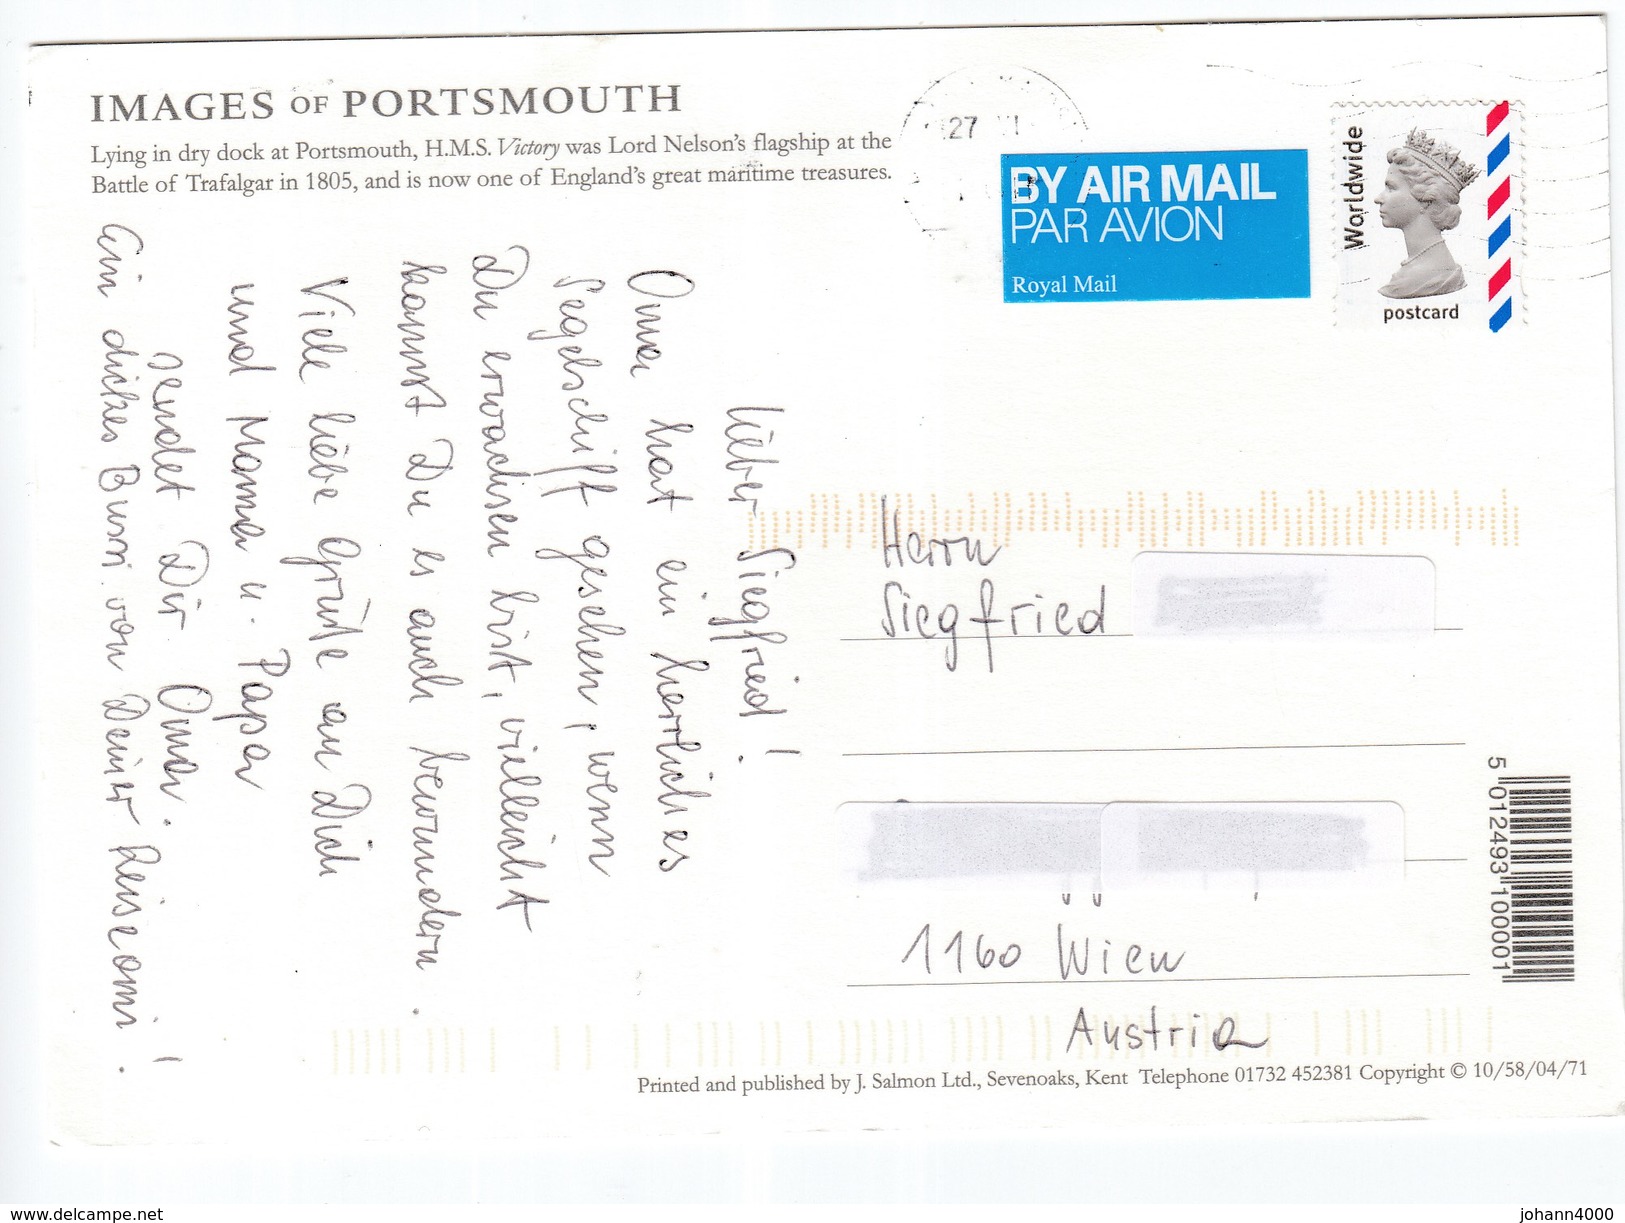 IMAGES OF PORTSMOUTH
Lying in dry dock at Portsmouth, H.M.S. Victory was Lord Nelson's flagship at the
Battle of Trafalgar in 1805, and is now one of England's great maritime treasures.
27
BY AIR MAIL
PAR AVION
Royal Mail
Worldwide
postcard
Lieber Siegfried!
Oma hat ein herrliches
Segelschiff gesehen, wenn
Du erwachsen bist, vielleicht
kannst Du es auch bewundern.
Viele liebe Grüße an Dich
und Mama u. Papa
sendet Dir Oma.
Ein dickes Bussi von Deiner Reiseomi!
Herrn
Siegfried
1160 Wien
Austria
5 012493 100001
Printed and published by J. Salmon Ltd., Sevenoaks, Kent Telephone 01732 452381 Copyright © 10/58/04/71
www.delcampe.net
johann4000